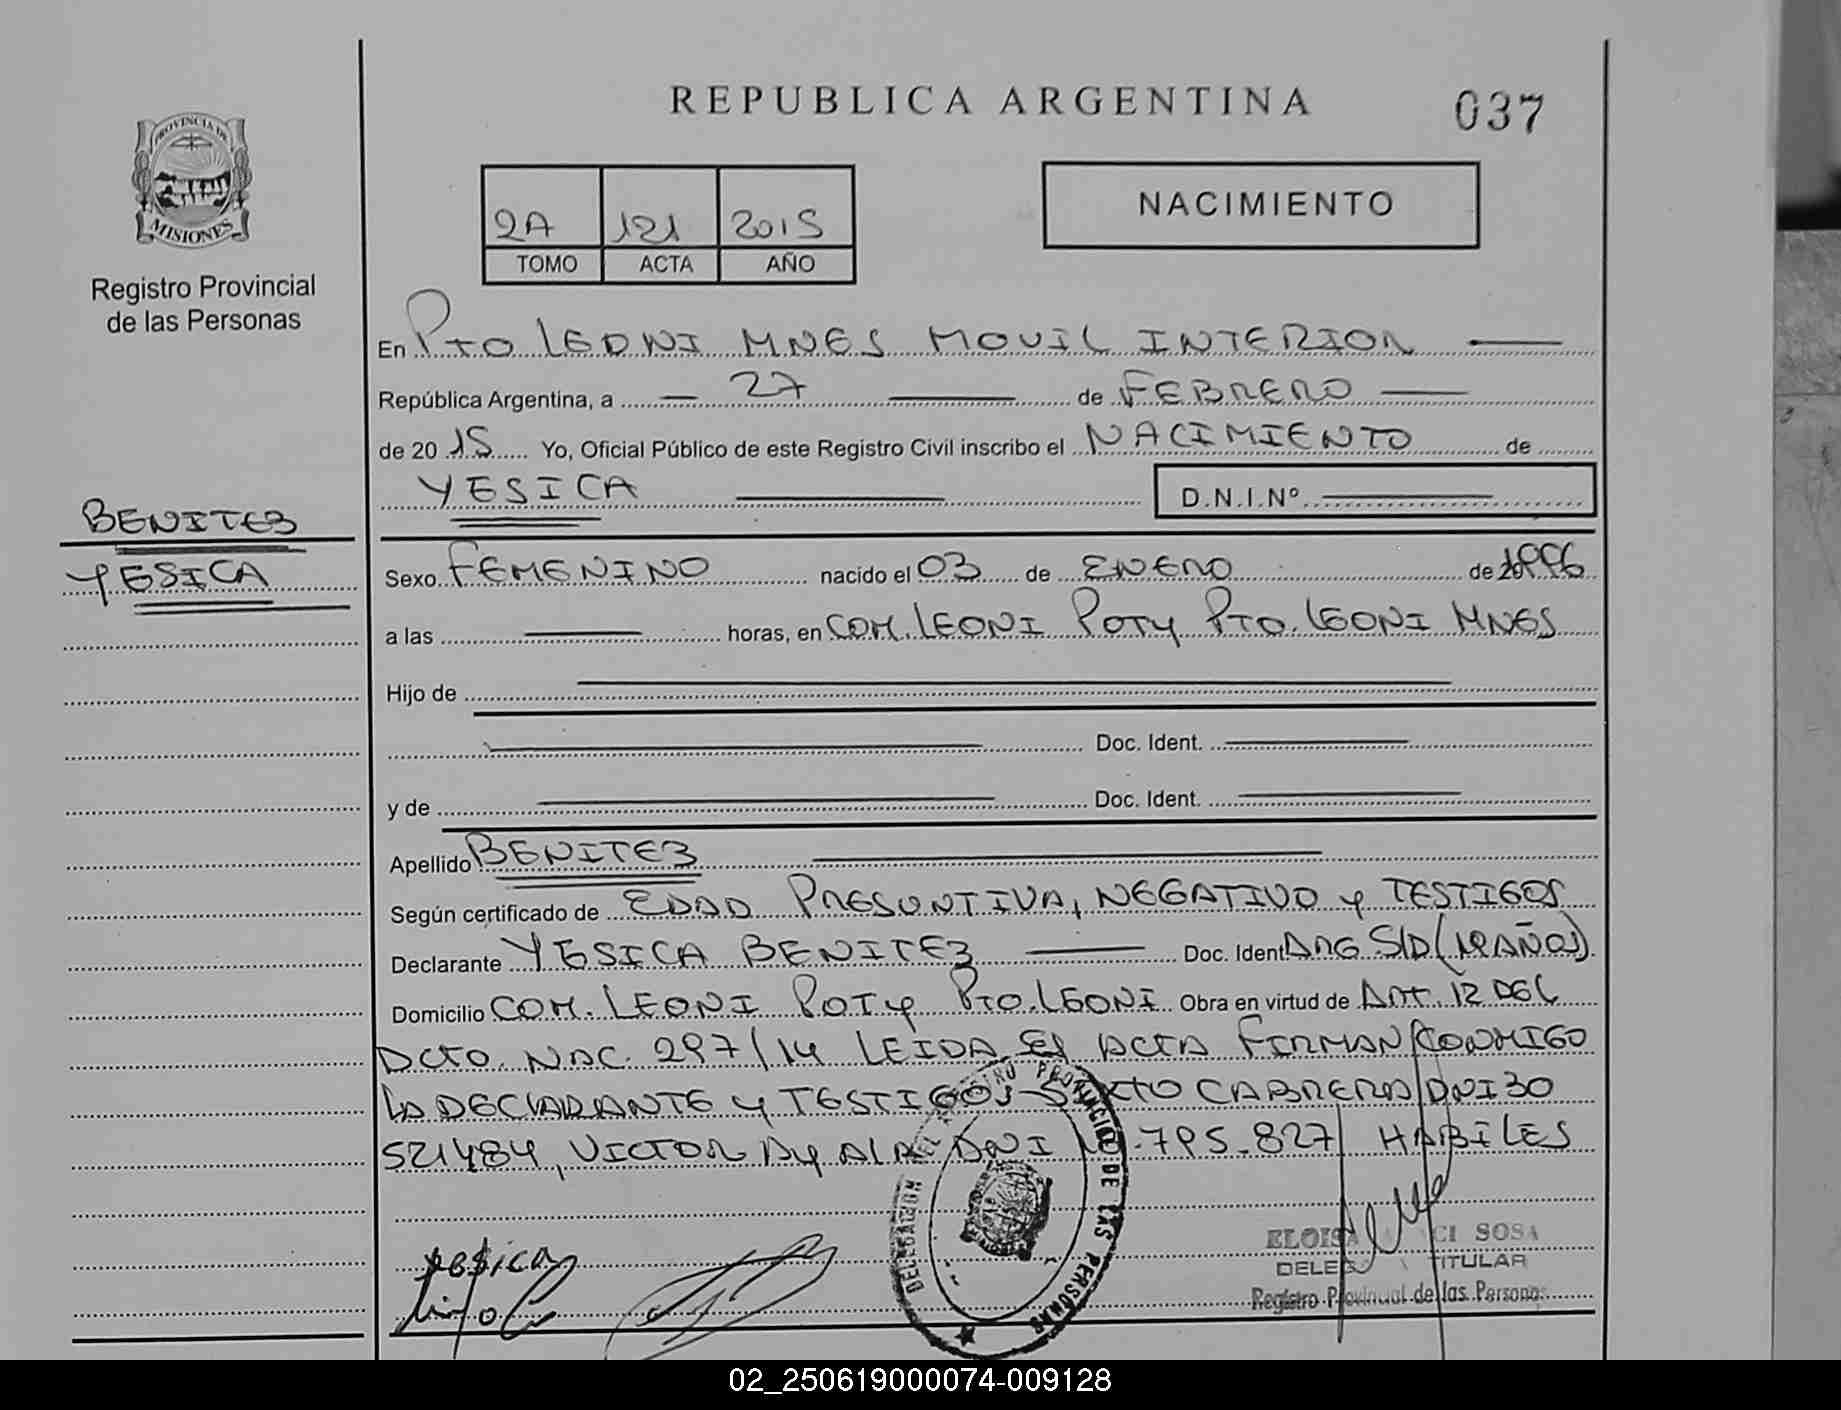 REPUBLICA ARGENTINA
037
PROVINCIA DE
MISIONES
Registro Provincial
de las Personas
2A 121 2015
TOMO ACTA AÑO
NACIMIENTO
En PTO LEONI MNES MOVIL INTERIOR
República Argentina, a 27 de FEBRERO
de 20 15 Yo, Oficial Público de este Registro Civil inscribo el NACIMIENTO de
YESICA D.N.I.Nº
BENITEZ
YESICA
Sexo FEMENINO nacido el 03 de ENERO de 1996
a las horas, en COM. LEONI POTY PTO. LEONI MNES
Hijo de
Doc. Ident.
y de Doc. Ident.
Apellido BENITEZ
Según certificado de EDAD PRESUNTIVA, NEGATIVO y TESTIGOS
Declarante YESICA BENITEZ Doc. Ident ARG S/D (19 AÑOS)
Domicilio COM. LEONI POTY PTO. LEONI Obra en virtud de ART. 12 DEL
DCTO. NAC. 297/14 LEIDA EL ACTA FIRMAN CONMIGO
LA DECLARANTE y TESTIGOS SIXTO CABRERA DNI 30
521484, VICTOR AYALA DNI .795.827 HABILES
DELEGACION DEL REGISTRO PROVINCIAL DE LAS PERSONAS
yesica
ELOISA SOSA
DELEG TITULAR
Registro Provincial de las Personas
02_250619000074-009128